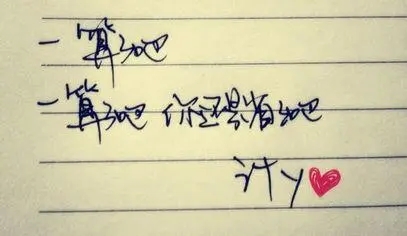 一算了吧
一算了吧 你还是省了吧
计y